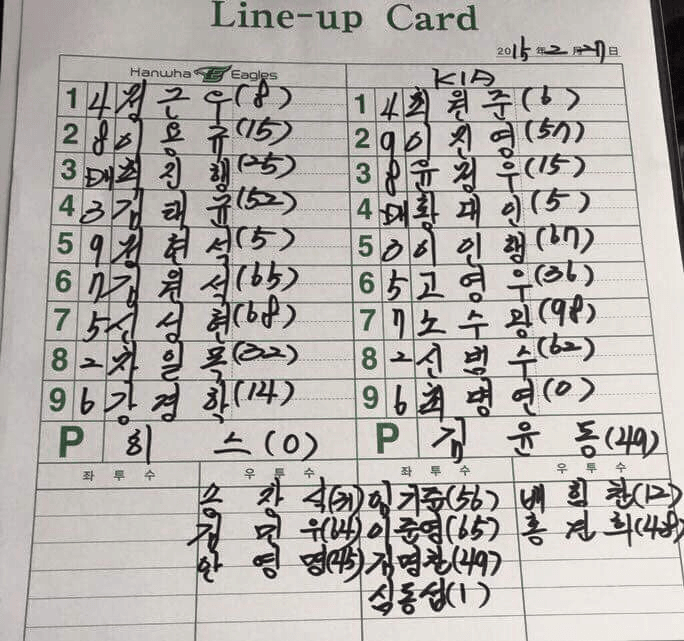 Line-up Card
2015 年 2 月 27 日
Hanwha Eagles
KIA
1 4 정근우(8)
1 4 최원준(6)
2 8 이용규(15)
2 9 이진영(57)
3 DH 최진행(25)
3 8 윤정우(15)
4 3 김태균(52)
4 DH 황대인(5)
5 9 정현석(5)
5 3 이인행(67)
6 7 김원석(65)
6 5 고영우(36)
7 5 신성현(68)
7 7 노수광(98)
8 2 차일목(32)
8 2 신범수(62)
9 6 강경학(14)
9 6 최병연(0)
P 히스(0)
P 김윤동(49)
좌투수 우투수
좌투수 우투수
송창식(31) 임기준(56) 배힘찬(12)
김민우(64) 이준영(65) 홍건희(48)
안영명(45) 김명찬(49)
심동섭(1)